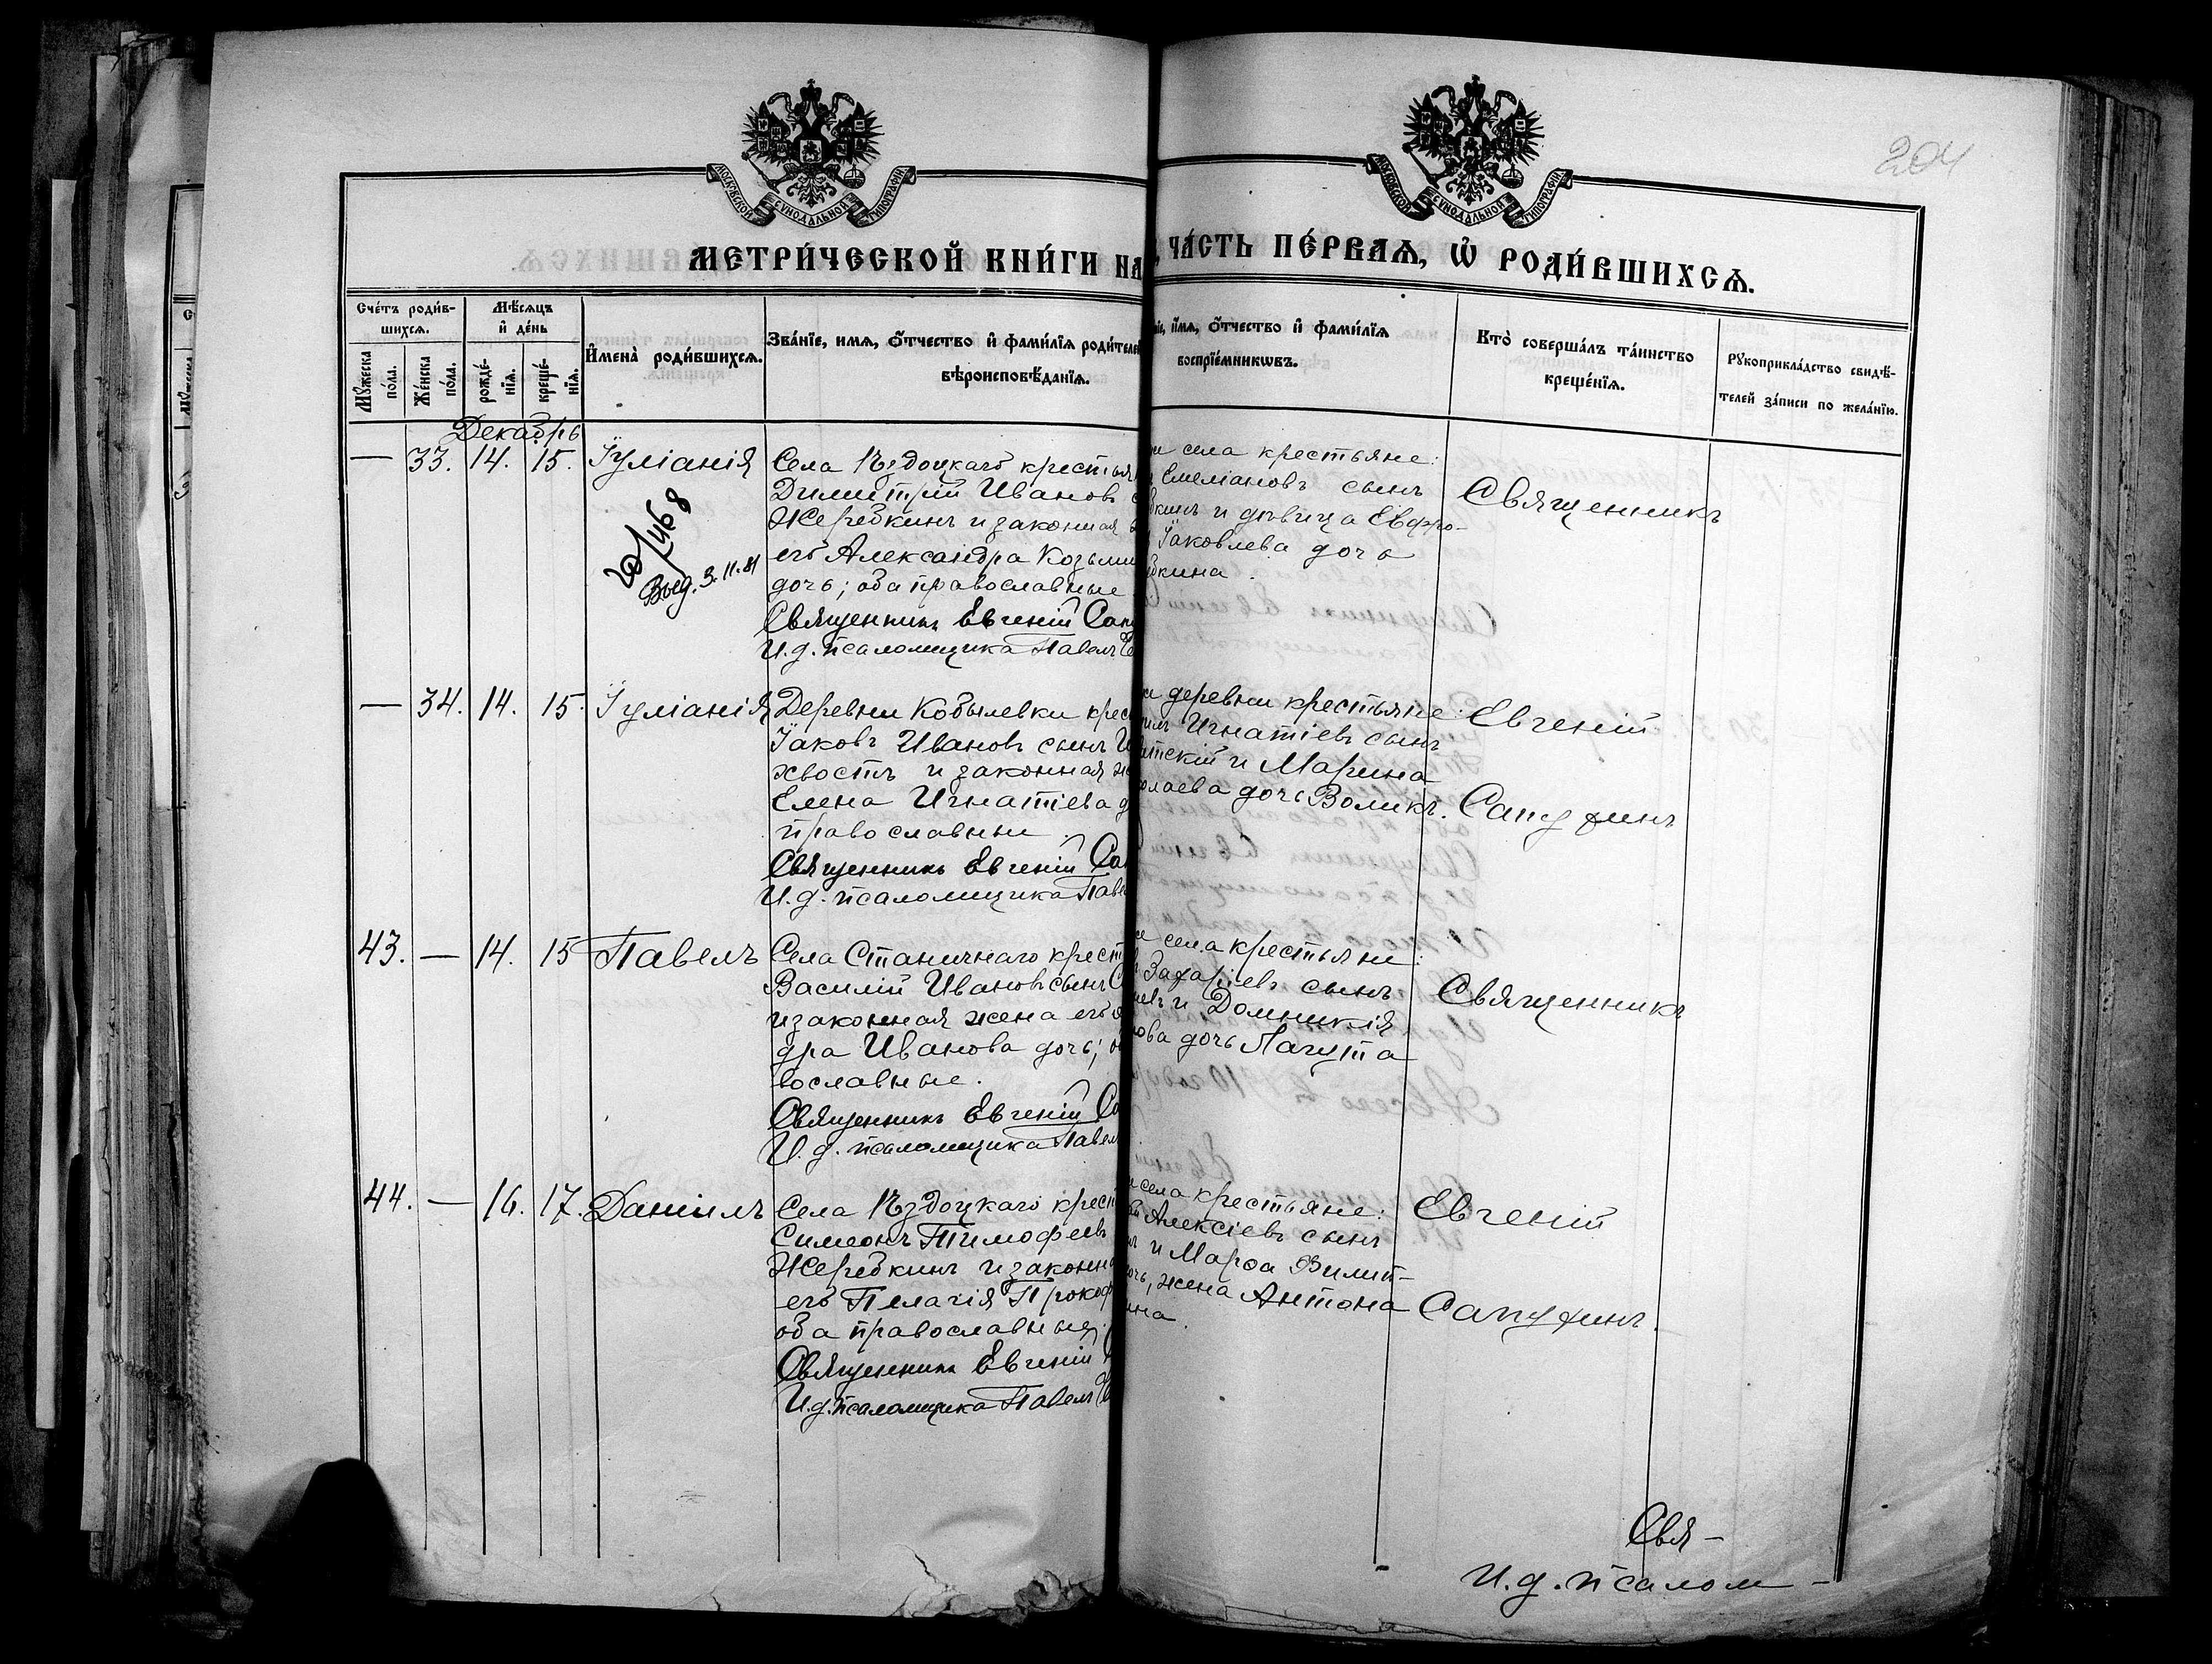 204
МОСКОВСКОЙ СѴНОДАЛЬНОЙ ТИПОГРАФІИ
МОСКОВСКОЙ СѴНОДАЛЬНОЙ ТИПОГРАФІИ
МЕТРИ́ЧЕСКОЙ КНИ́ГИ НА
ЧА́СТЬ ПЕ́РВАѦ, Ѡ҆ РОДИ́ВШИХСѦ.
Сче́тъ роди́в-
шихсѧ.
Мѣ́сѧцъ
и҆ де́нь
Мꙋ́жеска
по́ла.
Же́нска
по́ла.
рожде́-
нїѧ.
креще́-
нїѧ.
И҆мена̀ роди́вшихсѧ.
Зва́нїе, имѧ, ѻ҆́тчество и҆ фами́лїѧ роди́теле
вѣроисповѣ́данїѧ.
и҆́мѧ, ѻ҆́тчество и҆ фами́лїѧ
воспрїе́мникѡвъ.
Кто̀ соверша́лъ та́инство
креще́нїѧ.
Рꙋкоприкла́дство свидѣ́-
телей за́писи по жела́нїю.
Декабрь
— 33. 14. 15. Іуліанія
Села Ѣздоцкаго крестьян
Димитрій Иванов
Жеребкинъ и законная
его Александра Козьми
дочь; оба православные
Священникъ Евгеній Сап
И. д. псаломщика Павелъ
Выд. 3.11.81
села крестьяне:
Емеліановъ сынъ
бкинъ и дѣвица Евфро-
Іаковлева дочь
бкина.
Священникъ
— 34. 14. 15. Іуліанія
Деревни Кобылевки крес
Іаковъ Ивановъ сынъ
хвостъ и законная
Елена Игнатіева д
православны
Священникъ Евгеній Са
И. д. псаломщика Паве
деревни крестьяне:
Игнатіевъ сынъ
и Марина
олаева дочь Воликъ.
Евгеній
Сапухинъ
43. — 14. 15 Павелъ
Села Станичнаго крест
Василій Ивановъ сынъ
и законная жена его
дра Иванова дочь; о
вославные.
Священникъ Евгеній Са
И. д. псаломщика Павел
села крестьяне:
Захаріевъ сынъ
и Домникія
ова дочь Лагута
Священникъ
44. — 16. 17. Даніилъ
Села Ѣздоцкаго крест
Симеонъ Тимофеевъ
Жеребкинъ и законна
его Пелагія Прокоф
оба православные.
Священникъ Евгеній
И. д. псаломщика Павелъ
села крестьяне:
Алексіевъ сынъ
и Марѳа Филип-
очь, жена Антона
ина.
Евгеній
Сапухинъ.
Свя-
И. д. псалом-